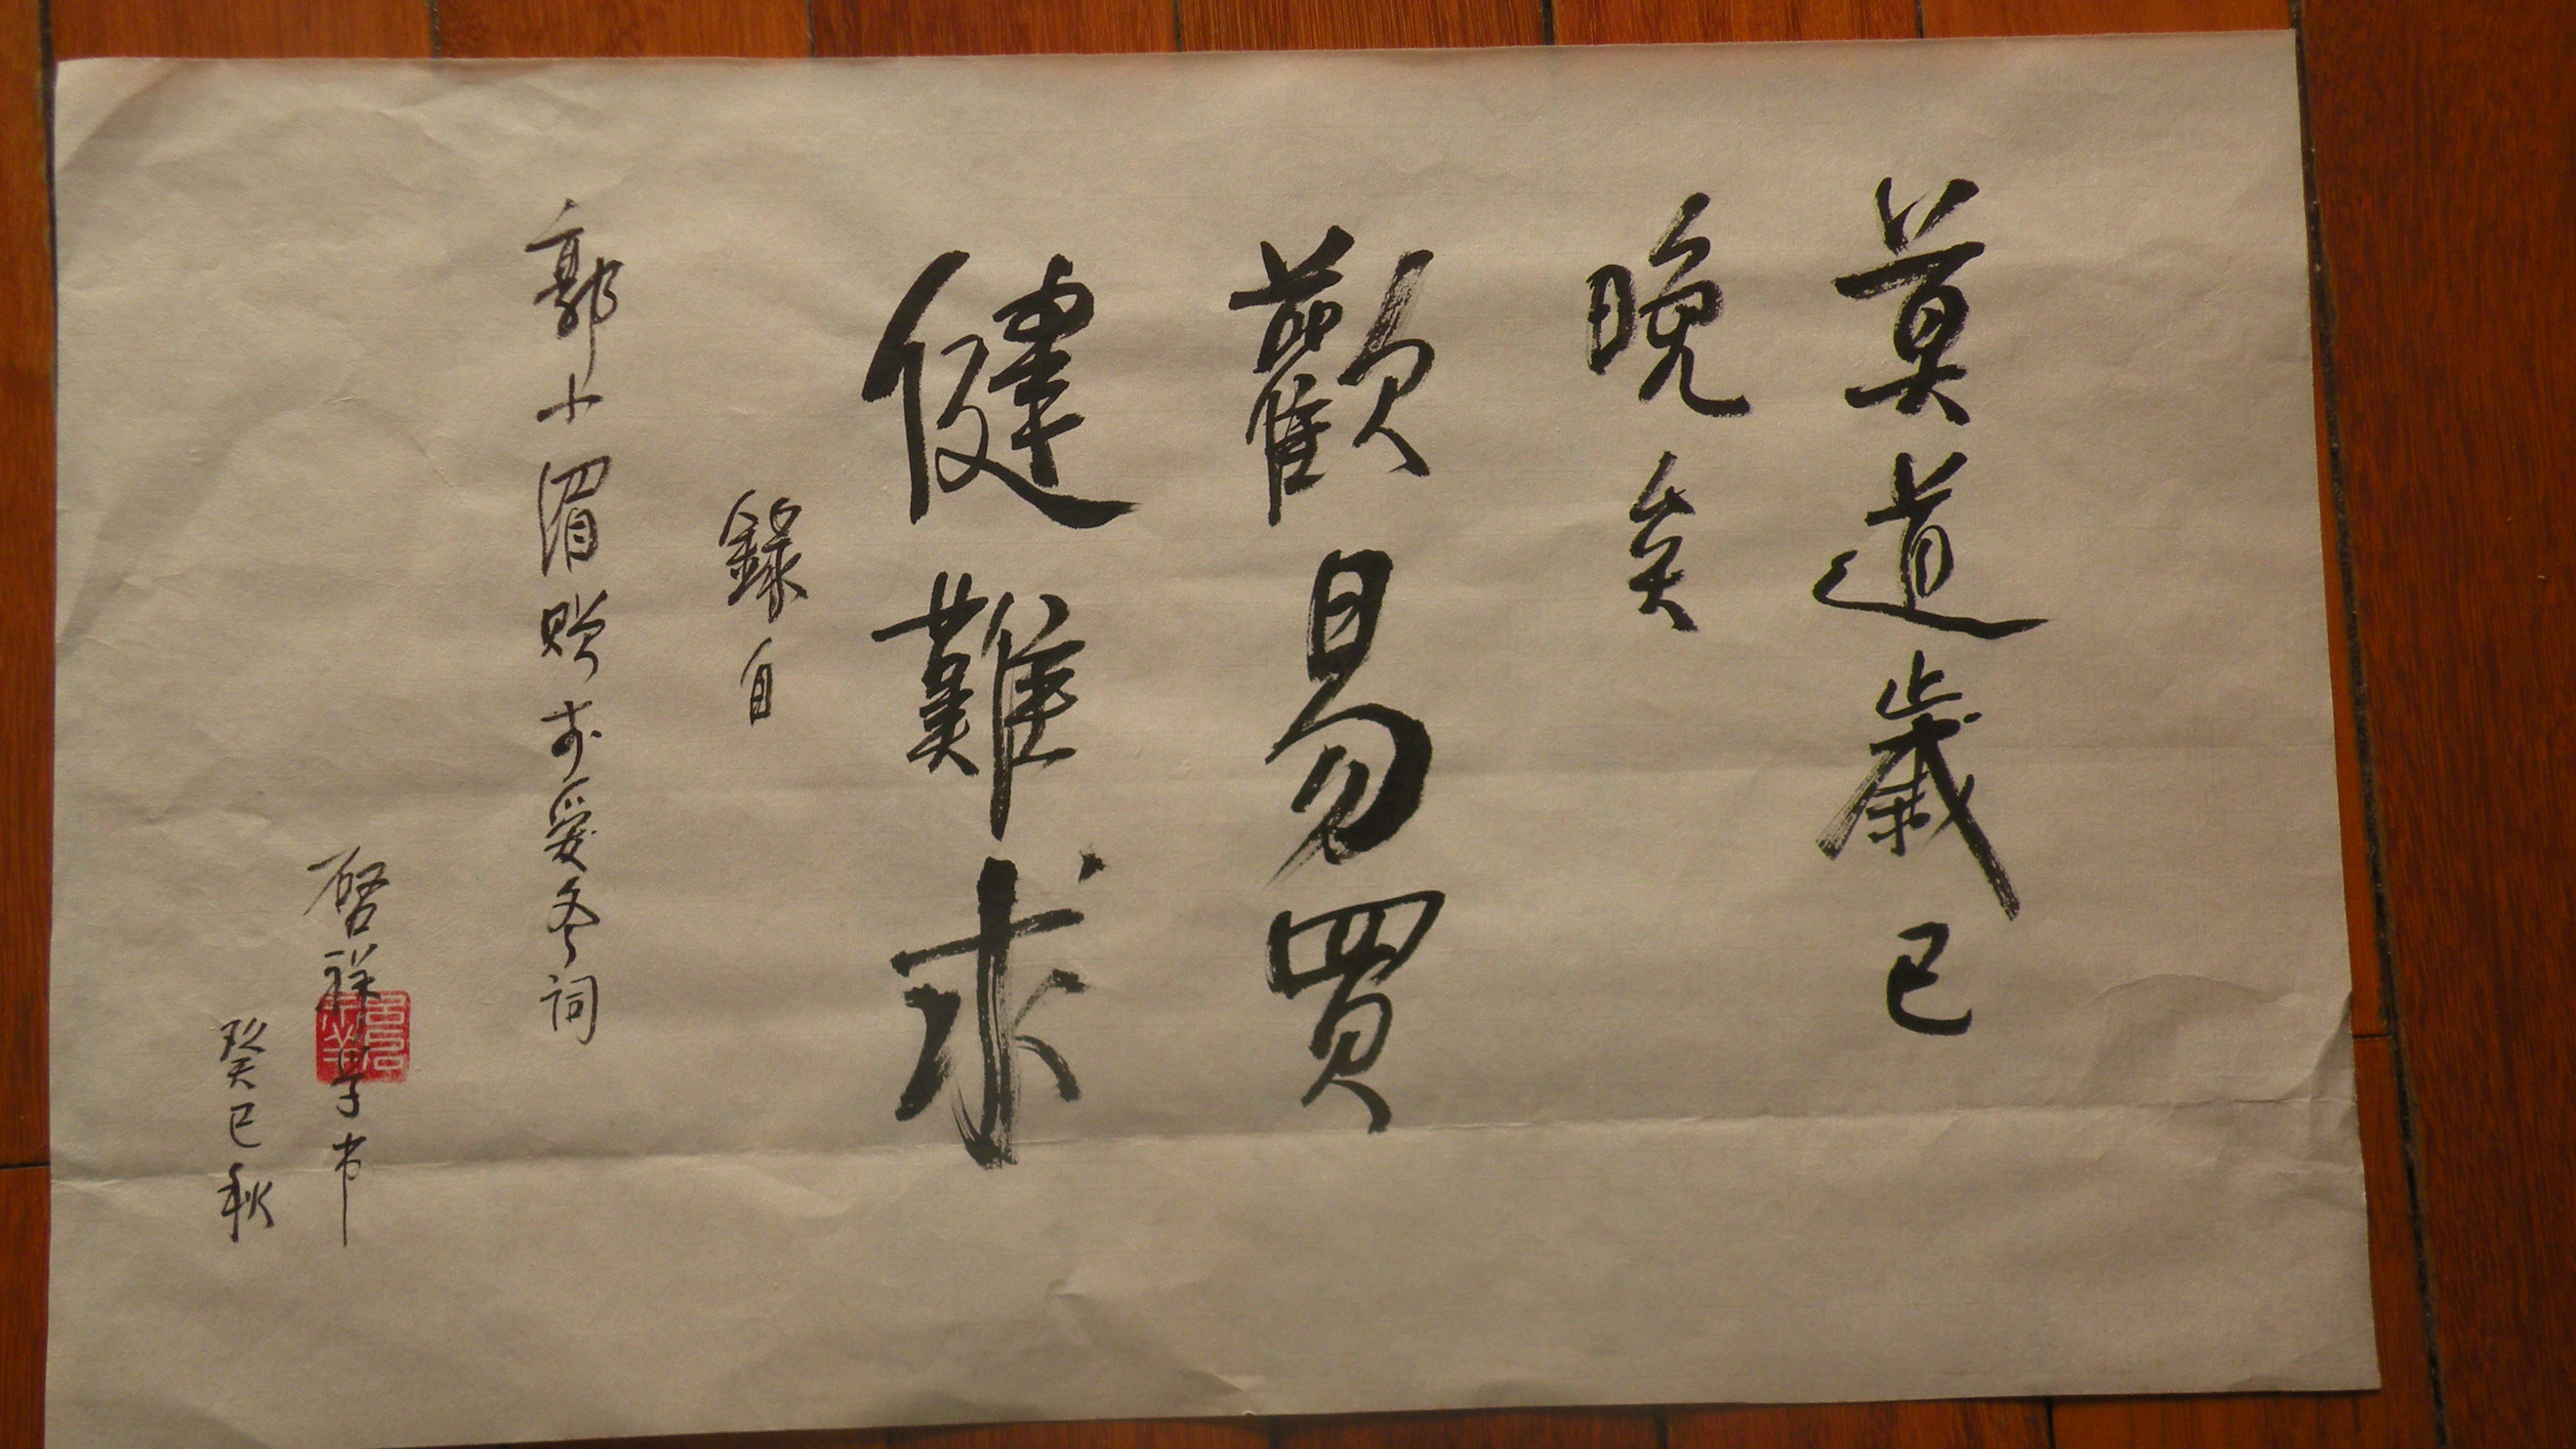 莫道歲已
晚矣
歡易買
健難求
錄自
郭小湄贈李爱冬詞
啓祥学书
癸巳秋